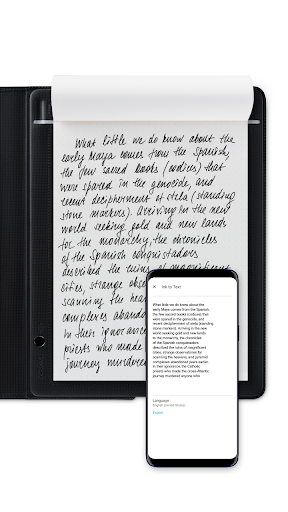 What little we do know about the
early Maya comes from the Spanish,
the few sacred books (codices) that
were spared in the genocide, and
recent decipherment of stela (standing
stone markers). Arriving in the new
world seeking gold and new lands
for the monarchy, the chronicles
of the Spanish conquistadors
described the ruins of magnificent
cities, strange
scanning the
complexes
in their ignorance
priests who made
journey murdered
Ink to Text
What little we do know about the
early Maya comes from the Spanish,
the few sacred books (codices) that
were spared in the genocide, and
recent decipherment of stela (standing
stone markers). Arriving in the new
world seeking gold and new lands
to the monarchy, the chronicles
of the Spanish conquistadors
described the ruins of magnificent
cities, strange observatories for
scanning the heavens, and pyramid
complexes abandoned years earlier
in their ignorance, the Catholic
priests who made the cross-Atlantic
journey murdered anyone who
Language
English (United States)
Export